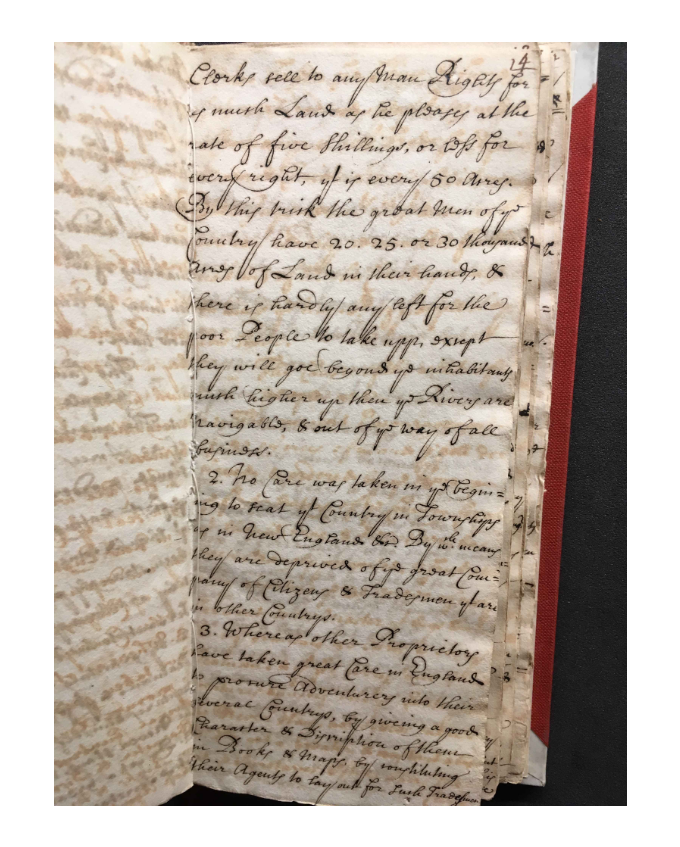 14
Clerks sell to any Man Rights for
as much Land as he pleases at the
rate of five Shillings, or less for
every right, yt is every 50 Acres.
By this trick the great Men of ye
Country have 20. 25. or 30 thousand
Acres of Land in their hands, &
there is hardly any left for the
poor People to take upp, except
they will goe beyond ye inhabitants
much higher up then ye Rivers are
navigable, & out of ye way of all
business.
2. No Care was taken in ye begin=
ing to seat yt Country in Townships
as in New England &c. By wch means
they are deprived of ye great Com=
pany of Citizens & Tradesmen yt are
in other Countrys.
3. Whereas other Proprietors
have taken great Care in England
to procure Adventurers into their
several Countrys, by giveing a good
Character & Discription of them
in Books & Maps. by constituting
their Agents to lay out for such Tradesmen